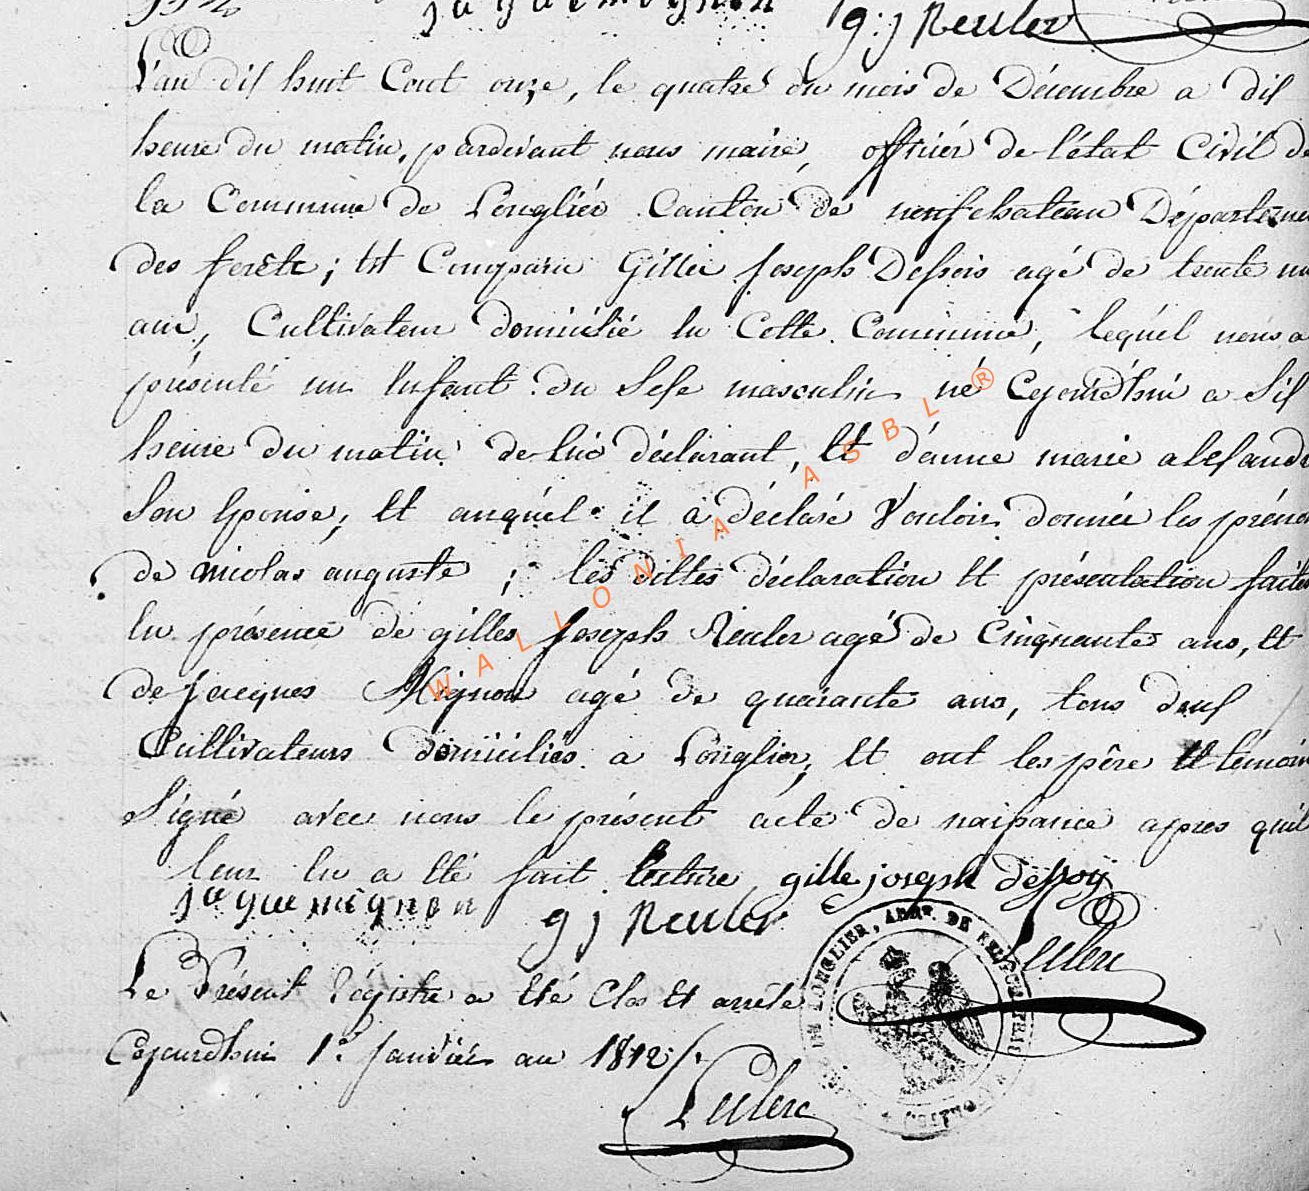 jaquemignon g: j Reuler
L'an dix huit Cent onze, le quatre du mois de Décembre a dix
heure du matin, pardevant nous maire, officier de l'état Civil de
la Commune de Longlier Canton de neufchateau Départeme
des forêts; Est Comparu Gille Joseph Dessois agé de trente
ans, Cultivateur domicilié En Cette Commune, lequel nous a
présenté un Enfant du Sexe masculin né Cejourd'hui a Six
heure du matin de lui déclarant, Et d'anne marie alexand
Son Epouse, Et auquel il a déclaré Vouloir donner les préno
de nicolas auguste; les dittes déclaration Et présentation faites
En présence de gilles Joseph Reuler agé de Cinquante ans, Et
de Jacques Mignon agé de quarante ans, tous deux
Cultivateurs domiciliés a Longlier, Et ont les père Et témoin
Signé avec nous le présent acte de naissance apres qu'il
leur En a Eté fait lecture gille joseph dessoÿ
jaquemignon g j Reuler Leclerc
Le Présent Régistre a Eté Clos Et arrêté
Cejourd'hui 1er Janvier an 1812 /.
Leclerc
LONGLIER, ARRT. DE NEUFCHATEAU
WALLONIA ASBL ®